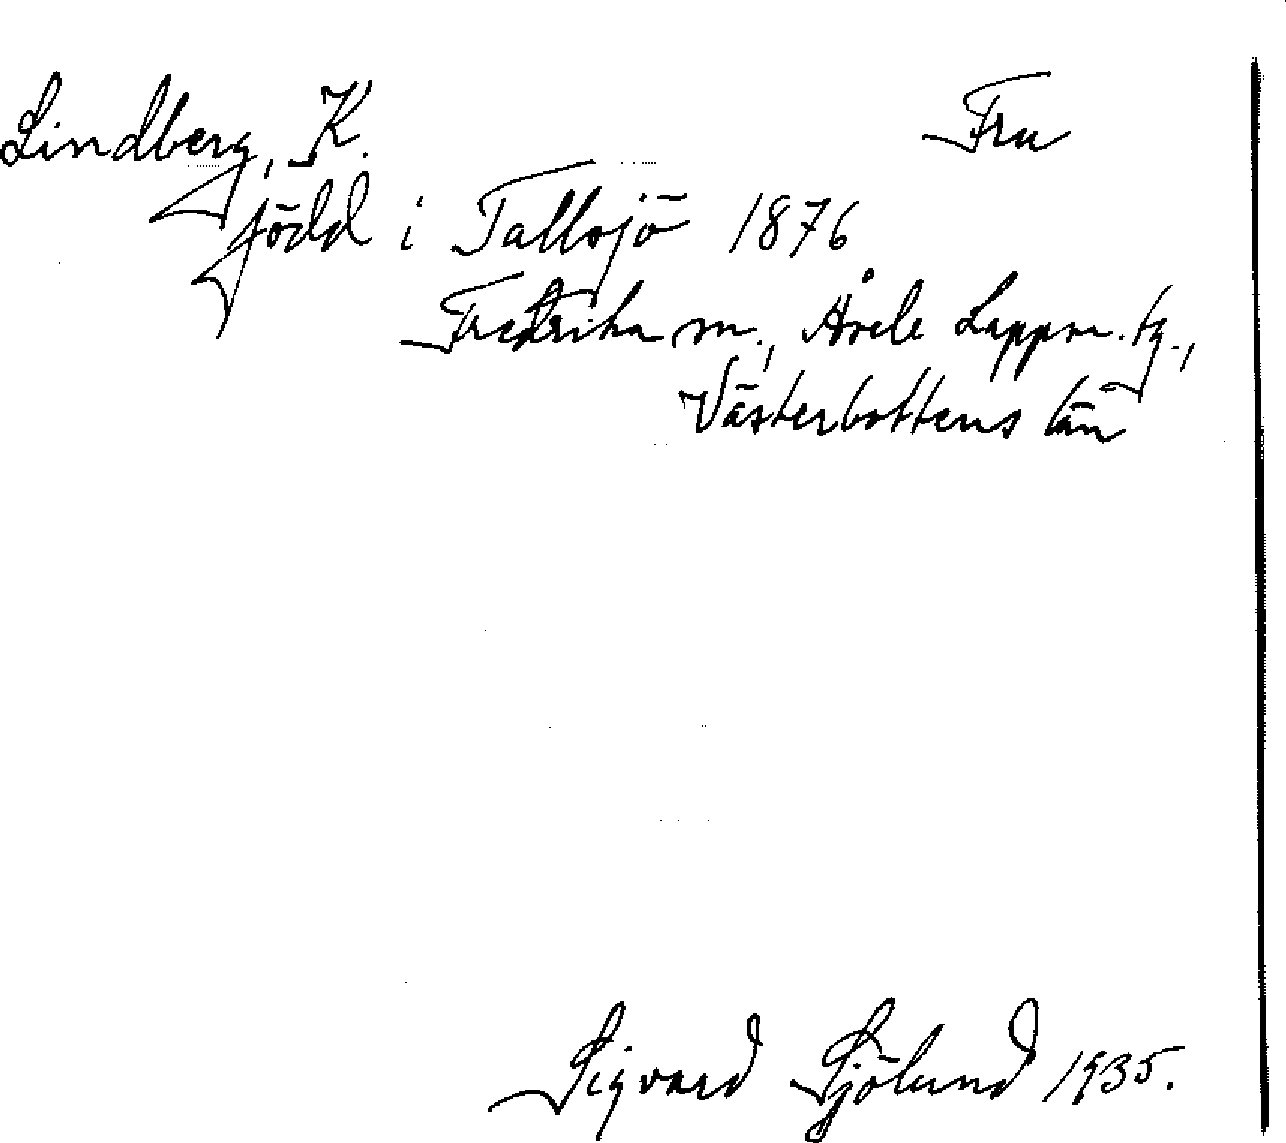 Lindberg, K. Fru
född i Tallsjö 1876
Fredrika m., Åsele Lappm. tg.,
Västerbottens län
Sigvard Sjölund 1935.